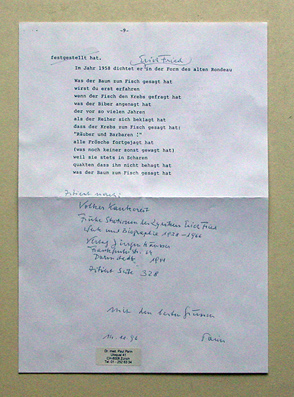 -9-
festgestellt hat,
Erich Fried
Im Jahr 1958 dichtet er in der Form des alten Rondeau
Was der Baum zum Fisch gesagt hat
wirst du erst erfahren
wenn der Fisch den Krebs gefragt hat
was der Biber angenagt hat
der vor so vielen Jahren
als der Reiher sich beklagt hat
dass der Krebs zum Fisch gesagt hat:
"Räuber und Barbaren !"
alle Frösche fortgejagt hat
(was noch keiner sonst gewagt hat)
weil sie stets in Scharen
quakten dass ihn nicht behagt hat
was der Baum zum Fisch gesagt hat
Zitiert nach:
Volker Kaukoreit
Frühe Stationen des Lyrikers Erich Fried
Werk und Biographie 1938-1966
Verlag Jürgen Häusser
Frankfurterstr. 64
Darmstadt 1991
Seite 328
mit den besten Grüssen
14.10.96
Dr. med. Paul Parin
Utoquai 41
CH-8008 Zürich